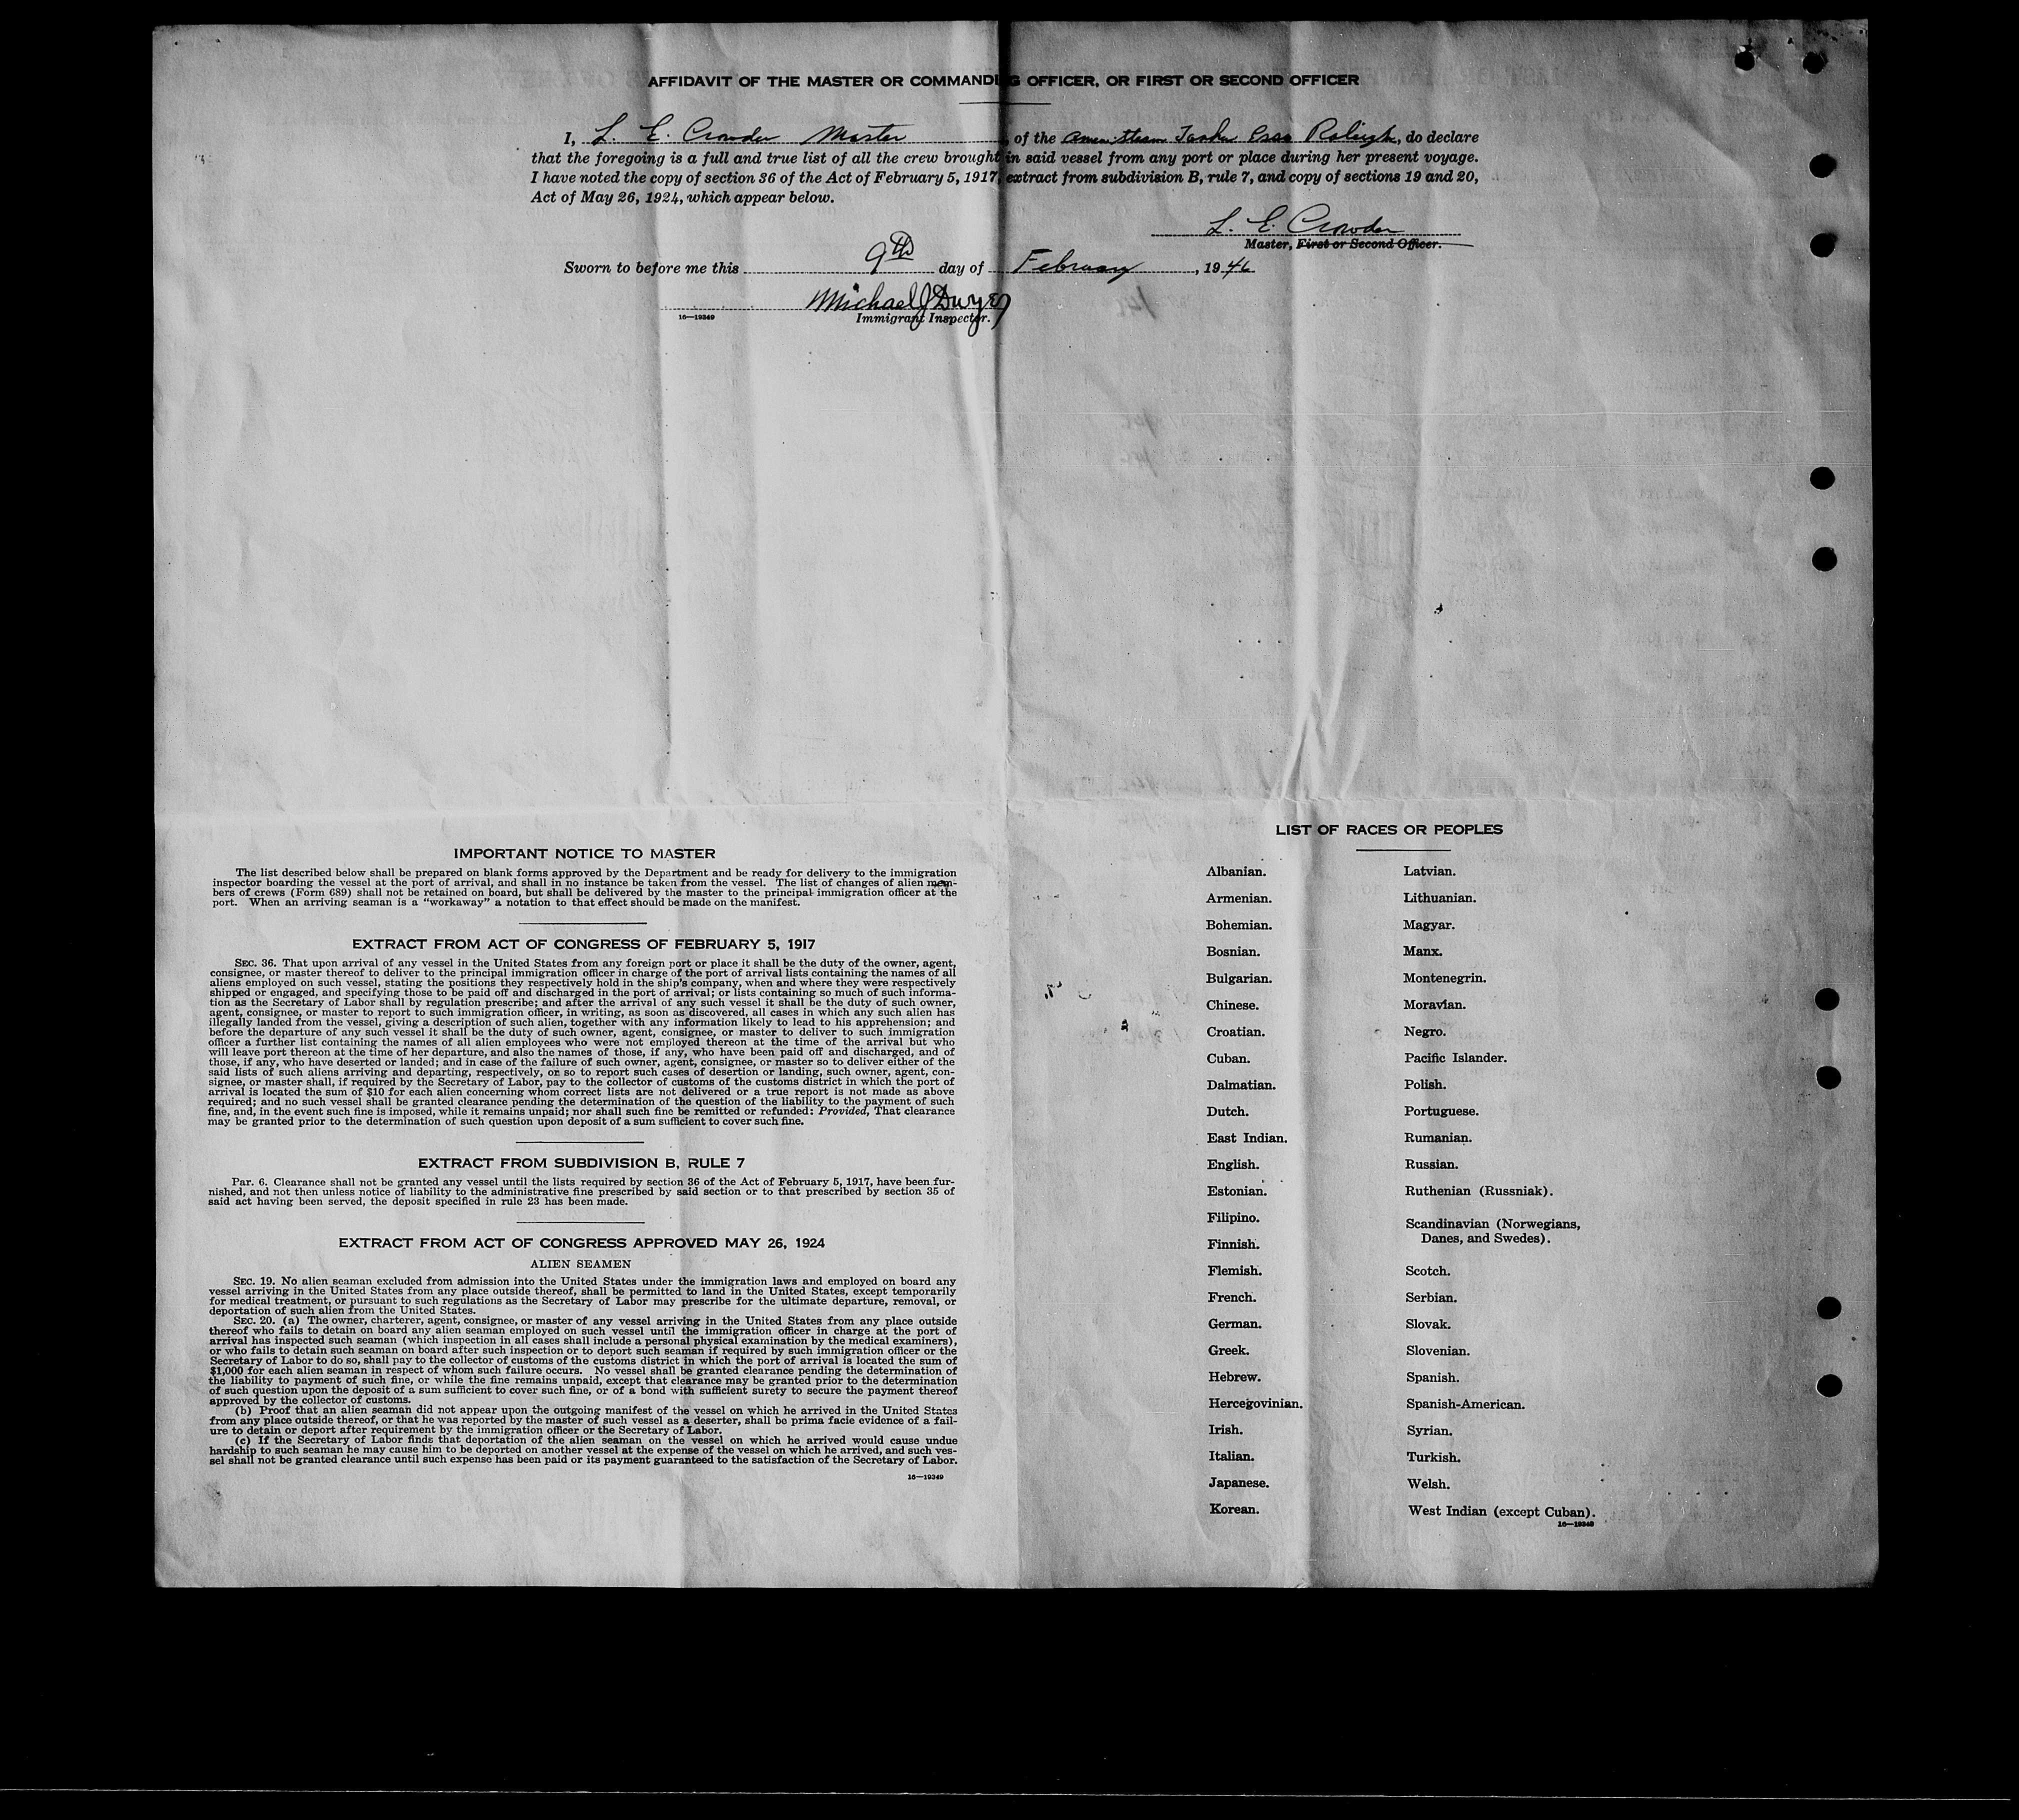 AFFIDAVIT OF THE MASTER OR COMMANDING OFFICER, OR FIRST OR SECOND OFFICER
I, L. E. Crowder Master, of the Amer. Steam Tanker Esso Raleigh, do declare
that the foregoing is a full and true list of all the crew brought in said vessel from any port or place during her present voyage.
I have noted the copy of section 36 of the Act of February 5, 1917, extract from subdivision B, rule 7, and copy of sections 19 and 20,
Act of May 26, 1924, which appear below.
L. E. Crowder
Master, First or Second Officer.
Sworn to before me this 9th day of February, 1946
Michael J Dwyer
16—19349 Immigrant Inspector.
IMPORTANT NOTICE TO MASTER
The list described below shall be prepared on blank forms approved by the Department and be ready for delivery to the immigration
inspector boarding the vessel at the port of arrival, and shall in no instance be taken from the vessel. The list of changes of alien mem-
bers of crews (Form 689) shall not be retained on board, but shall be delivered by the master to the principal immigration officer at the
port. When an arriving seaman is a "workaway" a notation to that effect should be made on the manifest.
EXTRACT FROM ACT OF CONGRESS OF FEBRUARY 5, 1917
SEC. 36. That upon arrival of any vessel in the United States from any foreign port or place it shall be the duty of the owner, agent,
consignee, or master thereof to deliver to the principal immigration officer in charge of the port of arrival lists containing the names of all
aliens employed on such vessel, stating the positions they respectively hold in the ship's company, when and where they were respectively
shipped or engaged, and specifying those to be paid off and discharged in the port of arrival; or lists containing so much of such informa-
tion as the Secretary of Labor shall by regulation prescribe; and after the arrival of any such vessel it shall be the duty of such owner,
agent, consignee, or master to report to such immigration officer, in writing, as soon as discovered, all cases in which any such alien has
illegally landed from the vessel, giving a description of such alien, together with any information likely to lead to his apprehension; and
before the departure of any such vessel it shall be the duty of such owner, agent, consignee, or master to deliver to such immigration
officer a further list containing the names of all alien employees who were not employed thereon at the time of the arrival but who
will leave port thereon at the time of her departure, and also the names of those, if any, who have been paid off and discharged, and of
those, if any, who have deserted or landed; and in case of the failure of such owner, agent, consignee, or master so to deliver either of the
said lists of such aliens arriving and departing, respectively, or so to report such cases of desertion or landing, such owner, agent, con-
signee, or master shall, if required by the Secretary of Labor, pay to the collector of customs of the customs district in which the port of
arrival is located the sum of $10 for each alien concerning whom correct lists are not delivered or a true report is not made as above
required; and no such vessel shall be granted clearance pending the determination of the question of the liability to the payment of such
fine, and, in the event such fine is imposed, while it remains unpaid; nor shall such fine be remitted or refunded: Provided, That clearance
may be granted prior to the determination of such question upon deposit of a sum sufficient to cover such fine.
EXTRACT FROM SUBDIVISION B, RULE 7
Par. 6. Clearance shall not be granted any vessel until the lists required by section 36 of the Act of February 5, 1917, have been fur-
nished, and not then unless notice of liability to the administrative fine prescribed by said section or to that prescribed by section 35 of
said act having been served, the deposit specified in rule 23 has been made.
EXTRACT FROM ACT OF CONGRESS APPROVED MAY 26, 1924
ALIEN SEAMEN
SEC. 19. No alien seaman excluded from admission into the United States under the immigration laws and employed on board any
vessel arriving in the United States from any place outside thereof, shall be permitted to land in the United States, except temporarily
for medical treatment, or pursuant to such regulations as the Secretary of Labor may prescribe for the ultimate departure, removal, or
deportation of such alien from the United States.
SEC. 20. (a) The owner, charterer, agent, consignee, or master of any vessel arriving in the United States from any place outside
thereof who fails to detain on board any alien seaman employed on such vessel until the immigration officer in charge at the port of
arrival has inspected such seaman (which inspection in all cases shall include a personal physical examination by the medical examiners),
or who fails to detain such seaman on board after such inspection or to deport such seaman if required by such immigration officer or the
Secretary of Labor to do so, shall pay to the collector of customs of the customs district in which the port of arrival is located the sum of
$1,000 for each alien seaman in respect of whom such failure occurs. No vessel shall be granted clearance pending the determination of
the liability to payment of such fine, or while the fine remains unpaid, except that clearance may be granted prior to the determination
of such question upon the deposit of a sum sufficient to cover such fine, or of a bond with sufficient surety to secure the payment thereof
approved by the collector of customs.
(b) Proof that an alien seaman did not appear upon the outgoing manifest of the vessel on which he arrived in the United States
from any place outside thereof, or that he was reported by the master of such vessel as a deserter, shall be prima facie evidence of a fail-
ure to detain or deport after requirement by the immigration officer or the Secretary of Labor.
(c) If the Secretary of Labor finds that deportation of the alien seaman on the vessel on which he arrived would cause undue
hardship to such seaman he may cause him to be deported on another vessel at the expense of the vessel on which he arrived, and such ves-
sel shall not be granted clearance until such expense has been paid or its payment guaranteed to the satisfaction of the Secretary of Labor.
16—19349
LIST OF RACES OR PEOPLES
Albanian.
Armenian.
Bohemian.
Bosnian.
Bulgarian.
Chinese.
Croatian.
Cuban.
Dalmatian.
Dutch.
East Indian.
English.
Estonian.
Filipino.
Finnish.
Flemish.
French.
German.
Greek.
Hebrew.
Hercegovinian.
Irish.
Italian.
Japanese.
Korean.
Latvian.
Lithuanian.
Magyar.
Manx.
Montenegrin.
Moravian.
Negro.
Pacific Islander.
Polish.
Portuguese.
Rumanian.
Russian.
Ruthenian (Russniak).
Scandinavian (Norwegians,
Danes, and Swedes).
Scotch.
Serbian.
Slovak.
Slovenian.
Spanish.
Spanish-American.
Syrian.
Turkish.
Welsh.
West Indian (except Cuban).
16—19349